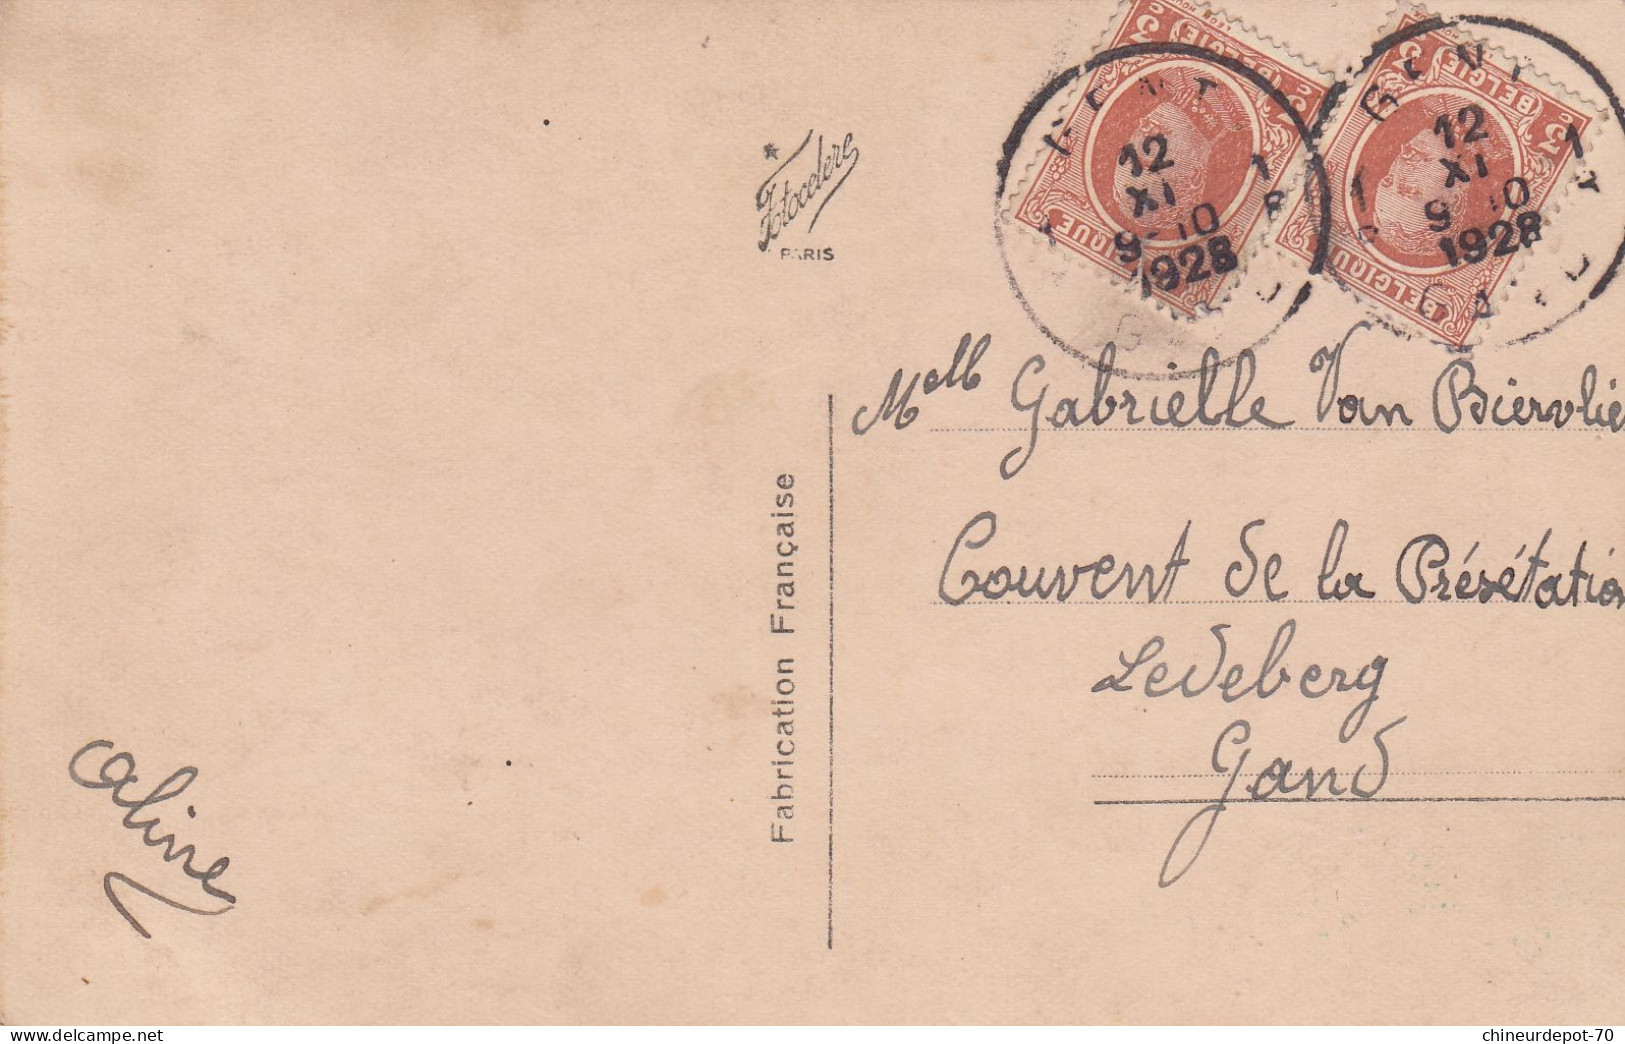 3 BELGIE 3
BELGIQUE
3 BELGIE 3
BELGIQUE
GENT
1 1
12
XI
9-10
1928
12
XI
9-10
1928
Fotocelere
PARIS
Fabrication Française
Melle Gabrielle Van Biervlie
Couvent de la Présétation
Ledeberg
Gand
Aline
delcampe.net
chineurdepot-70